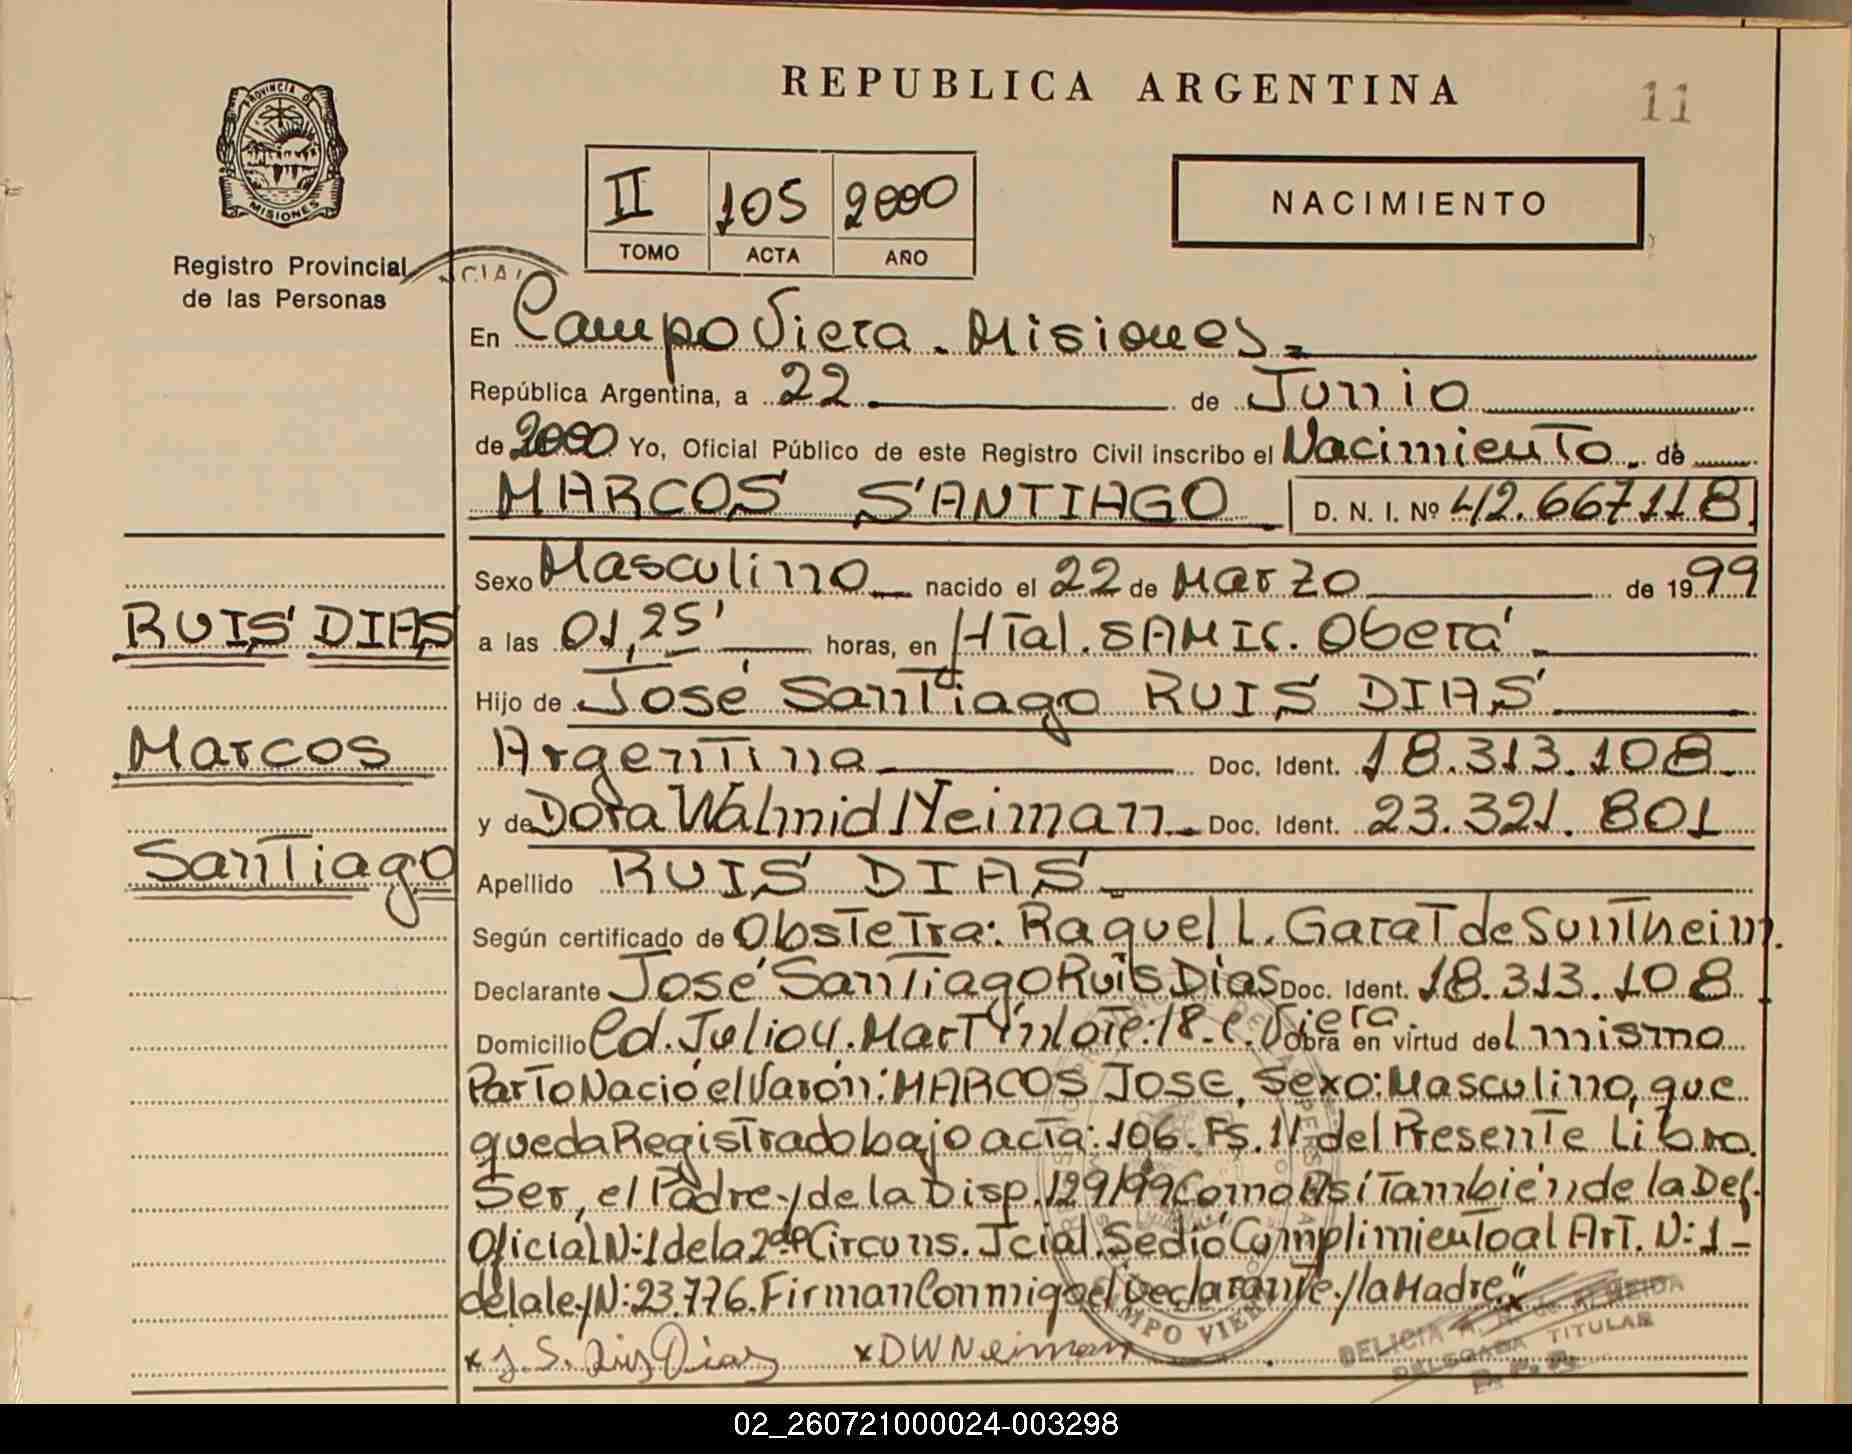 REPUBLICA ARGENTINA
11
PROVINCIA DE
MISIONES
Registro Provincial
de las Personas
II 105 2000
TOMO ACTA AÑO
NACIMIENTO
En Campo Viera. Misiones.=
República Argentina, a 22 de Junio
de 2000 Yo, Oficial Público de este Registro Civil inscribo el Nacimiento. de
MARCOS SANTIAGO D. N. I. Nº 42.667.118
Sexo Masculino nacido el 22 de Marzo de 1999
RUIS DIAS
a las 01,25' horas, en Htal. SAMIC. Oberá
Hijo de José Santiago RUIS DIAS
Marcos
Argentina Doc. Ident. 18.313.108
y de Dora Walmid Neiman. Doc. Ident. 23.321.801
Santiago
Apellido RUIS DIAS
Según certificado de Obstetra: Raquel L. Garat de Suntheim.
Declarante José Santiago Ruis Dias Doc. Ident. 18.313.108
Domicilio Cd. Julio U. Martín lote: 18-C. Viera. Obra en virtud del mismo
Parto Nació el Varón: MARCOS JOSE, Sexo: Masculino, que
queda Registrado bajo acta: 106. Fs. 11 del Presente Libro.
Ser, el Padre y de la Disp. 129/99 Como Así También de la Def.
Oficial N: 1 de la 2da Circuns. Jcial. Se dió Cumplimiento al Art. N: 1-
de la ley N: 23.776. Firman Conmigo el Declarante y la Madre."
x J. S. Ruis Dias x DWNeiman
CAMPO VIERA
DELICIA A. de ALMEIDA
DELEGADA TITULAR
02_260721000024-003298